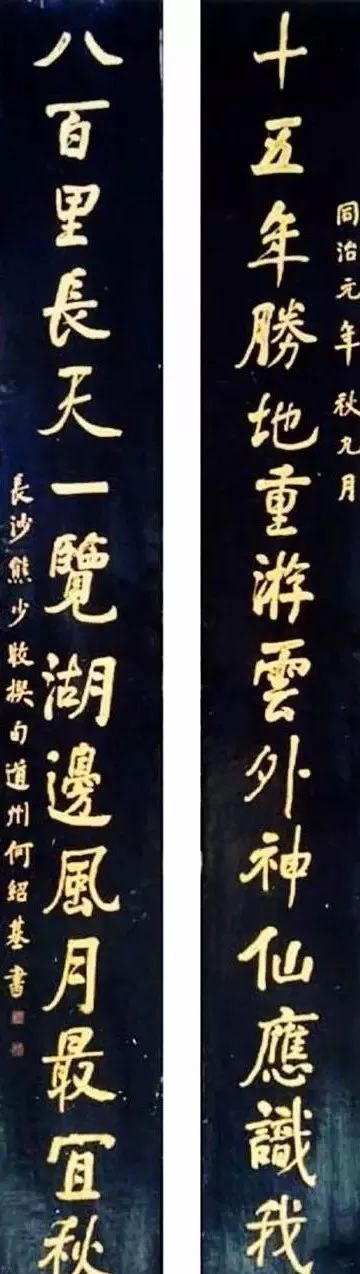 同治元年秋九月
十五年勝地重游雲外神仙應識我
八百里長天一覽湖邊風月最宜秋
長沙熊少牧撰句道州何紹基書